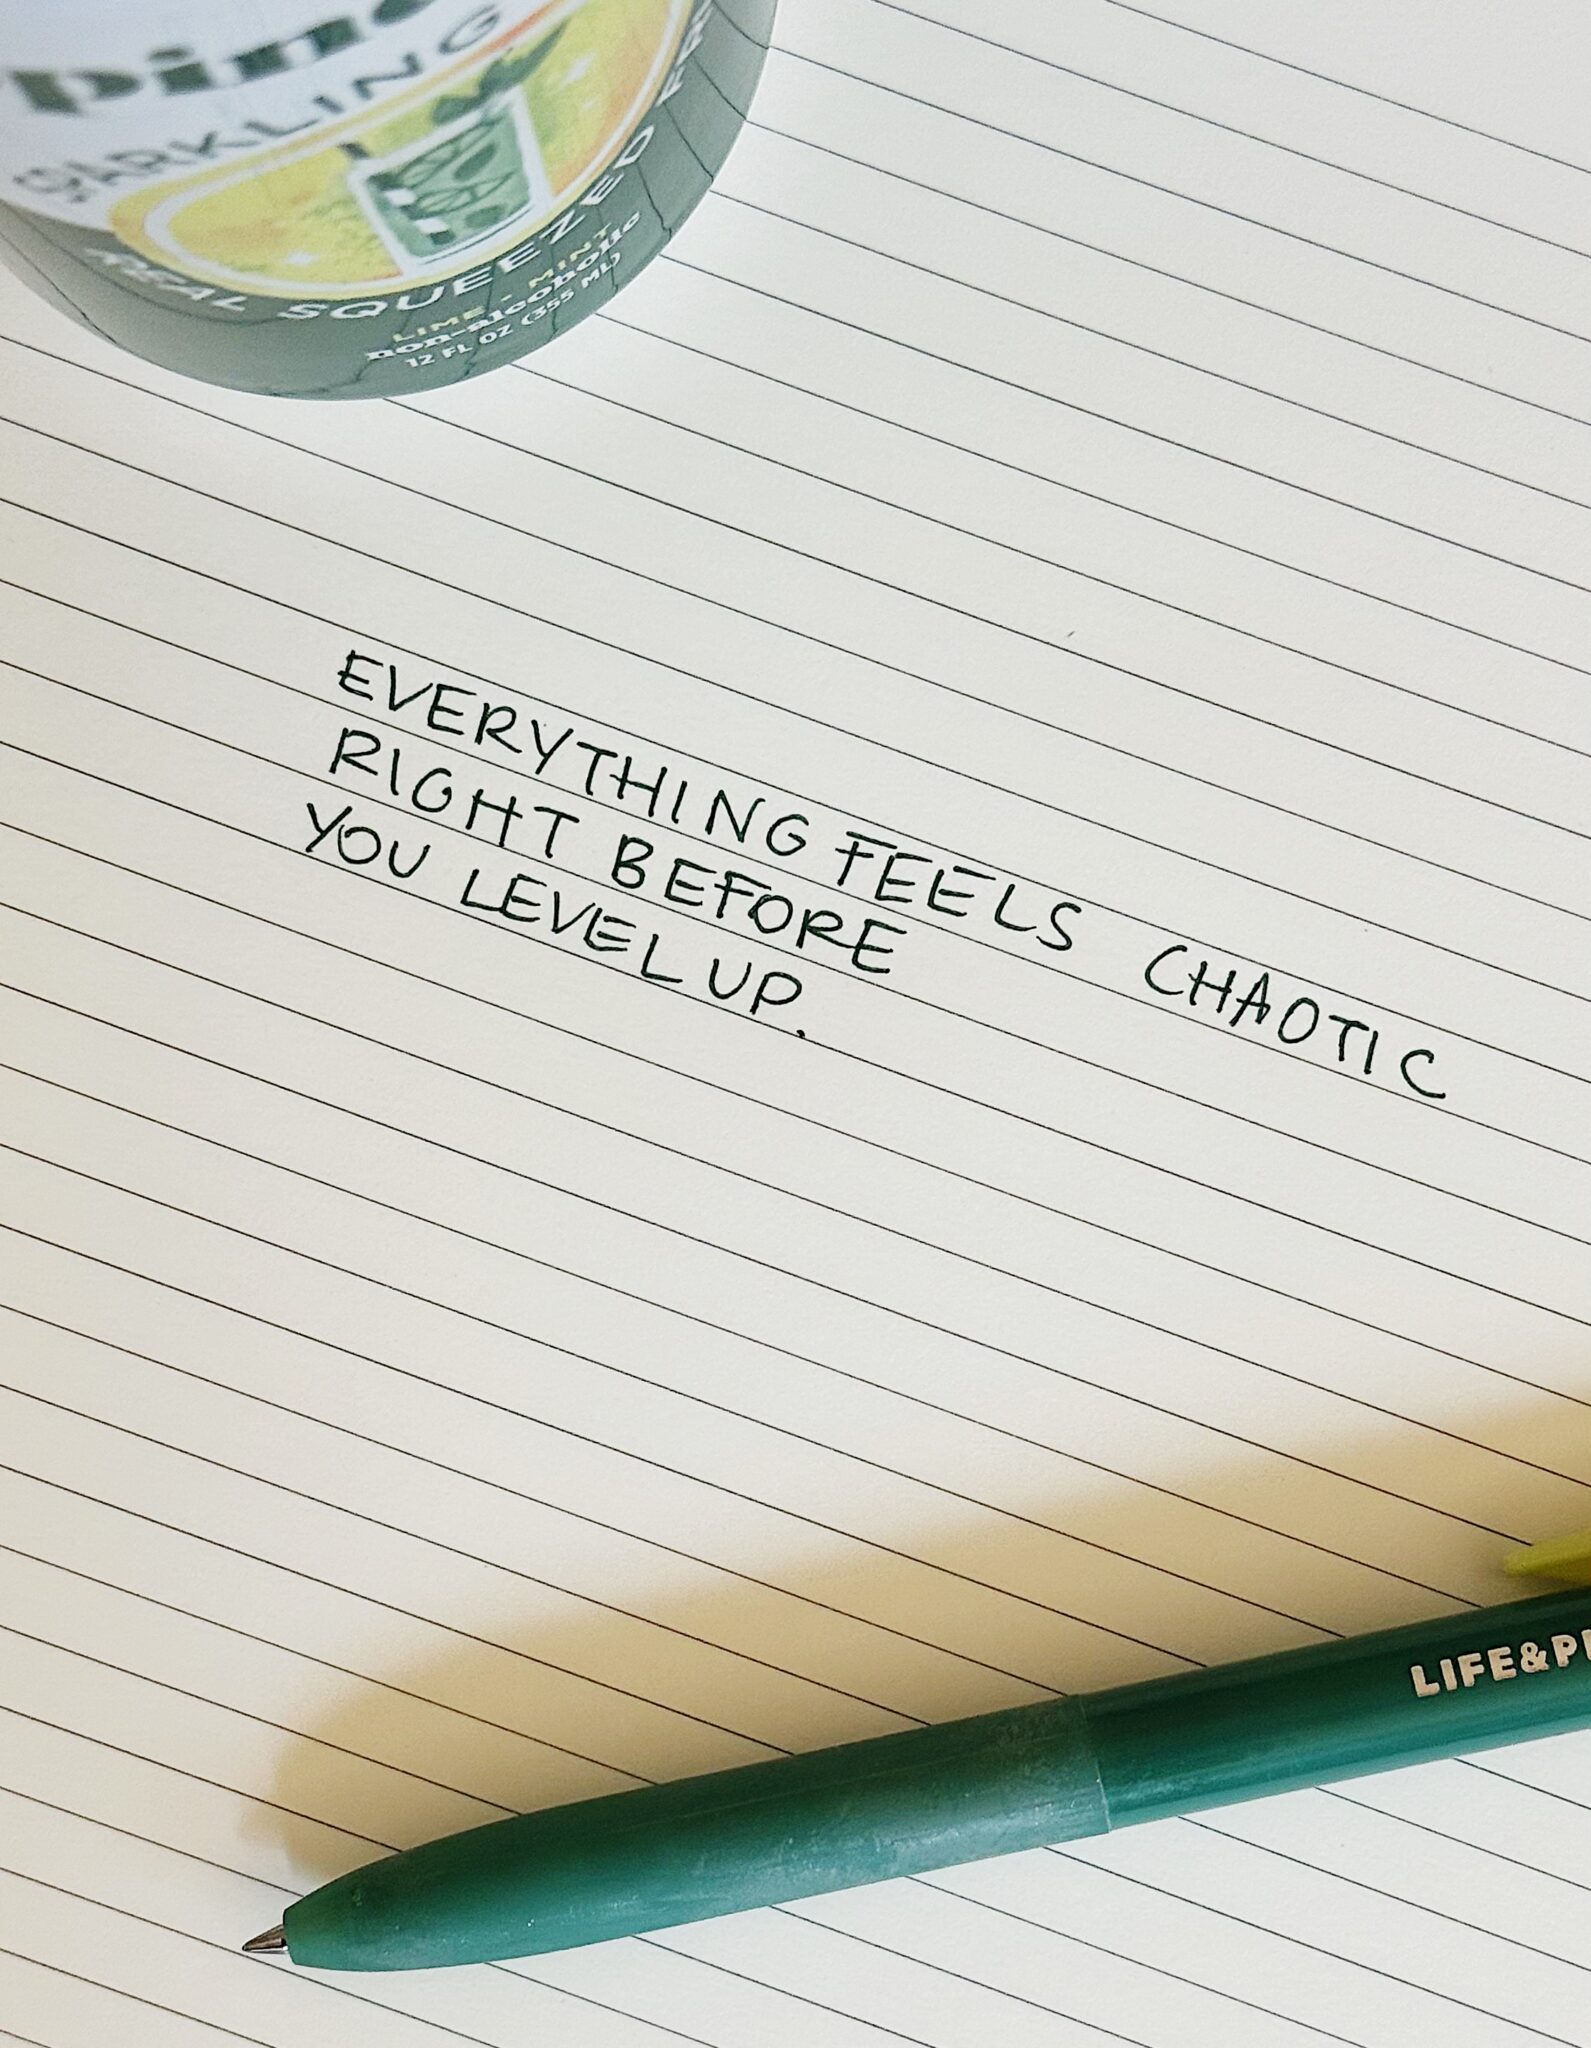 SPARKLING
REAL SQUEEZED
LIME - MINT
non-alcoholic
12 FL OZ (355 ML)
EVERYTHING FEELS CHAOTIC
RIGHT BEFORE
YOU LEVEL UP.
LIFE&